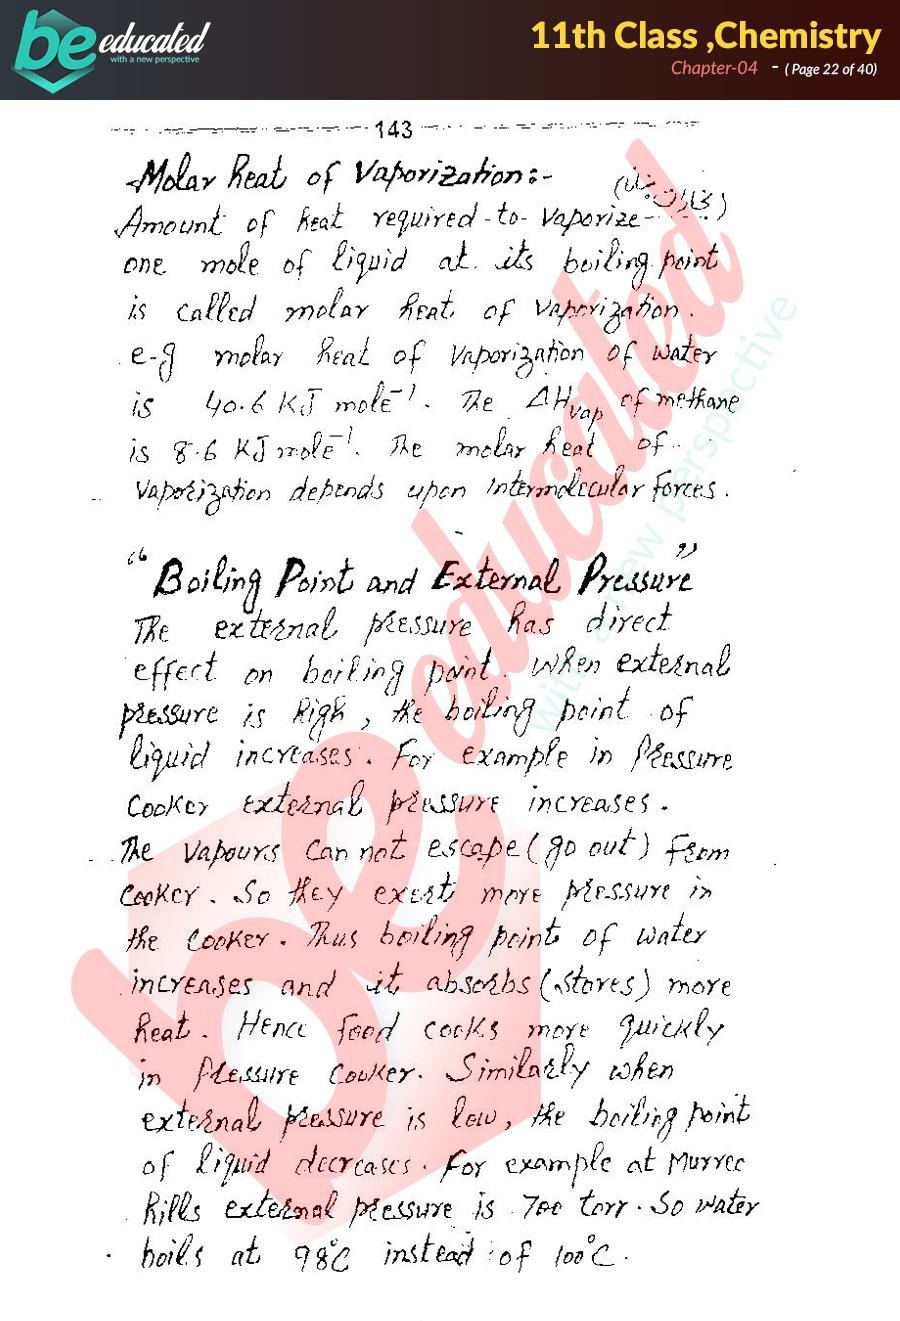 be educated
with a new perspective
11th Class ,Chemistry
Chapter-04 - ( Page 22 of 40)
143
Molar heat of Vaporization:-
Amount of heat required to vaporize
one mole of liquid at its boiling point
is called molar heat of vaporization.
e-g molar heat of vaporization of water
is 40.6 KJ mole⁻¹. The ΔHvap of methane
is 8.6 KJ mole⁻¹. The molar heat of
vaporization depends upon intermolecular forces.
"Boiling Point and External Pressure"
The external pressure has direct
effect on boiling point. When external
pressure is high, the boiling point of
liquid increases. For example in Pressure
cooker external pressure increases.
The vapours can not escape (go out) from
cooker. So they exert more pressure in
the cooker. Thus boiling point of water
increases and it absorbs (stores) more
heat. Hence food cooks more quickly
in pressure cooker. Similarly when
external pressure is low, the boiling point
of liquid decreases. For example at Murree
hills external pressure is 700 torr. So water
boils at 98°C instead of 100°C.
be educated
with a new perspective